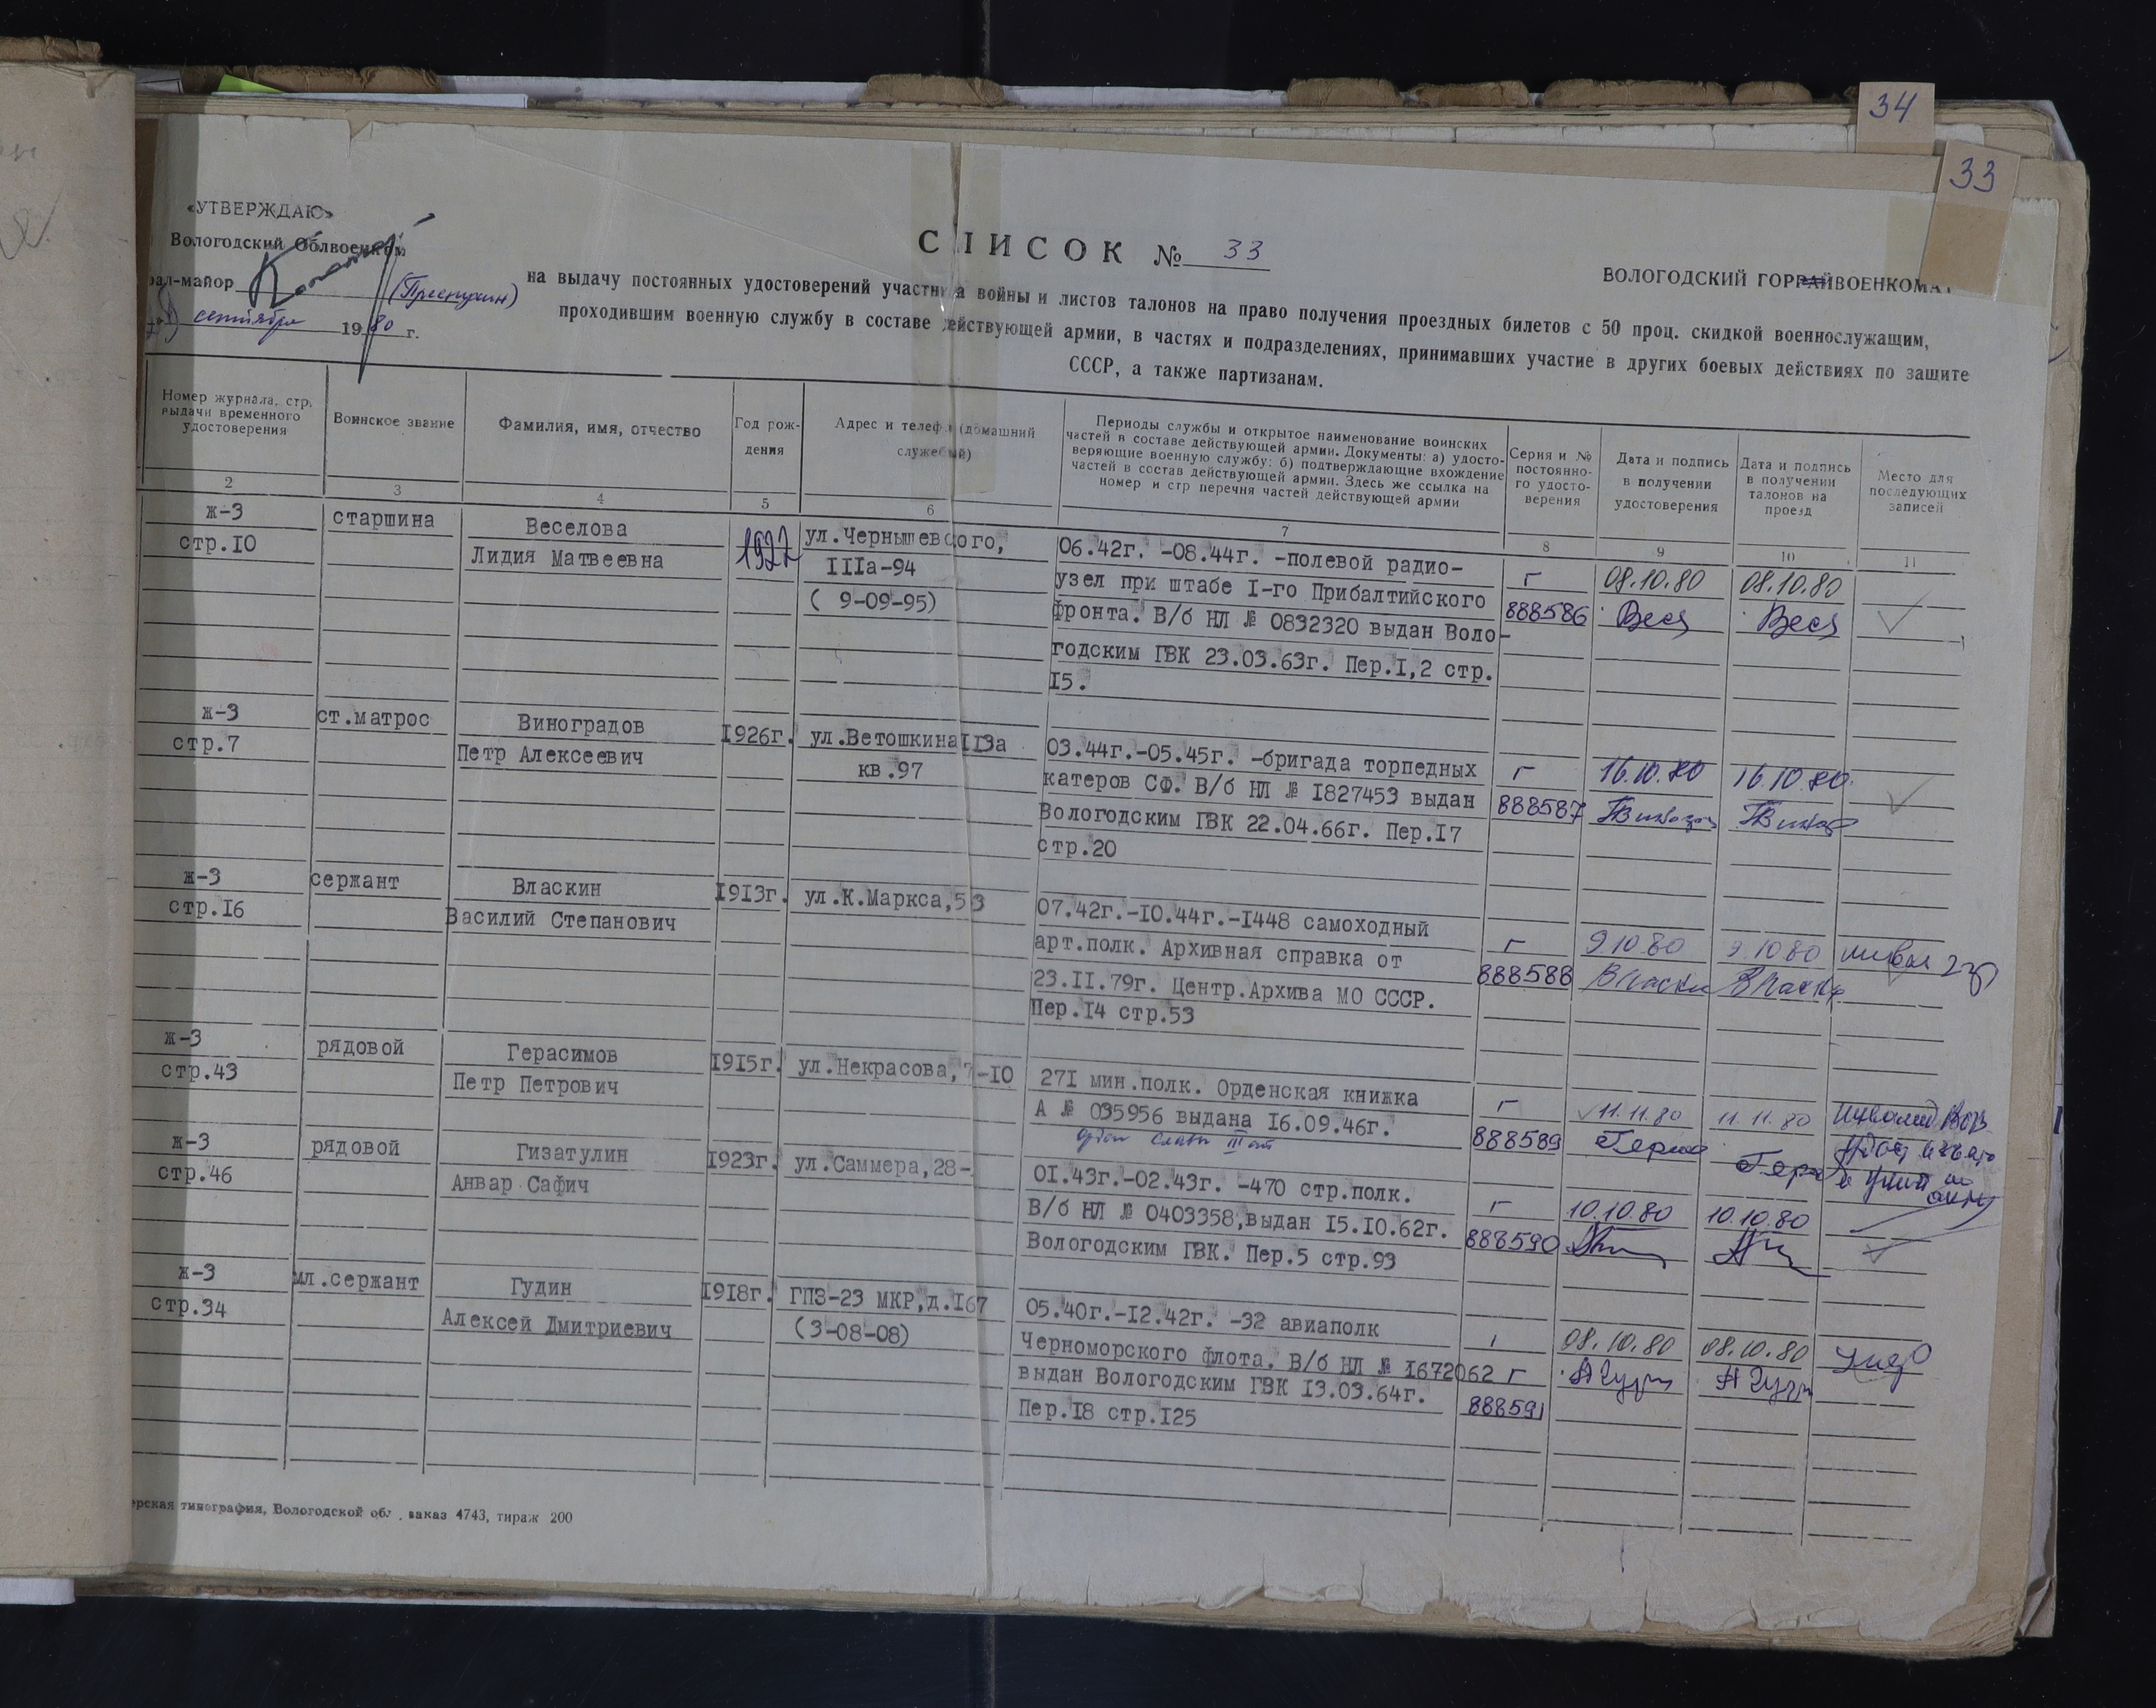 34
33
«УТВЕРЖДАЮ»
Вологодский Облвоенком
рал-майор
сентября 1980 г.
СПИСОК № 33
ВОЛОГОДСКИЙ ГОРРАЙВОЕНКОМАТ
на выдачу постоянных удостоверений участника войны и листов талонов на право получения проездных билетов с 50 проц. скидкой военнослужащим,
проходившим военную службу в составе действующей армии, в частях и подразделениях, принимавших участие в других боевых действиях по защите
СССР, а также партизанам.
Номер журнала, стр.
выдачи временного
удостоверения
Воинское звание
Фамилия, имя, отчество
Год рож-
дения
Адрес и телефон (домашний
служебный)
Периоды службы и открытое наименование воинских
частей в составе действующей армии. Документы: а) удосто-
веряющие военную службу: б) подтверждающие вхождение
частей в состав действующей армии. Здесь же ссылка на
номер и стр перечня частей действующей армии
Серия и №
постоянно-
го удосто-
верения
Дата и подпись
в получении
удостоверения
Дата и подпись
в получении
талонов на
проезд
Место для
последующих
записей
2 3 4 5 6 7 8 9 10 11
ж-3
стр.10
старшина
Веселова
Лидия Матвеевна
1927
ул.Чернышевского,
IIIа-94
( 9-09-95)
06.42г. -08.44г. -полевой радио-
узел при штабе I-го Прибалтийского
фронта. В/б НЛ № 0832320 выдан Воло-
годским ГВК 23.03.63г. Пер.I,2 стр.
15.
г
888586
08.10.80
Вес
08.10.80
Вес
ж-3
стр.7
ст.матрос
Виноградов
Петр Алексеевич
1926г.
ул.Ветошкина II3а
кв.97
03.44г.-05.45г. -бригада торпедных
катеров СФ. В/б НЛ № 1827453 выдан
Вологодским ГВК 22.04.66г. Пер.17
стр.20
г
888587
16.10.80
16.10.80
ж-3
стр.16
сержант
Власкин
Василий Степанович
1913г.
ул.К.Маркса,53
07.42г.-10.44г.-1448 самоходный
арт.полк. Архивная справка от
23.11.79г. Центр.Архива МО СССР.
Пер.14 стр.53
г
888588
9 10 80
Власки
9 10 80
Власки
ж-3
стр.43
рядовой
Герасимов
Петр Петрович
1915г.
ул.Некрасова,7-10
271 мин.полк. Орденская книжка
А № 035956 выдана 16.09.46г.
орден Славы III ст
г
888589
11.11.80
Герас
11.11.80
Гера
инвалид ВОВ
ж-3
стр.46
рядовой
Гизатулин
Анвар Сафич
1923г.
ул.Саммера,28-
01.43г.-02.43г. -470 стр.полк.
В/б НЛ № 0403358,выдан 15.10.62г.
Вологодским ГВК. Пер.5 стр.93
г
888590
10.10.80
10.10.80
ж-3
стр.34
мл.сержант
Гудин
Алексей Дмитриевич
1918г.
ГПЗ-23 МКР,д.167
(3-08-08)
05.40г.-12.42г. -32 авиаполк
Черноморского флота. В/б НЛ № 1672062
выдан Вологодским ГВК 13.03.64г.
Пер.18 стр.125
г
888591
08.10.80
08.10.80
ерская типография, Вологодской обл., заказ 4743, тираж 200